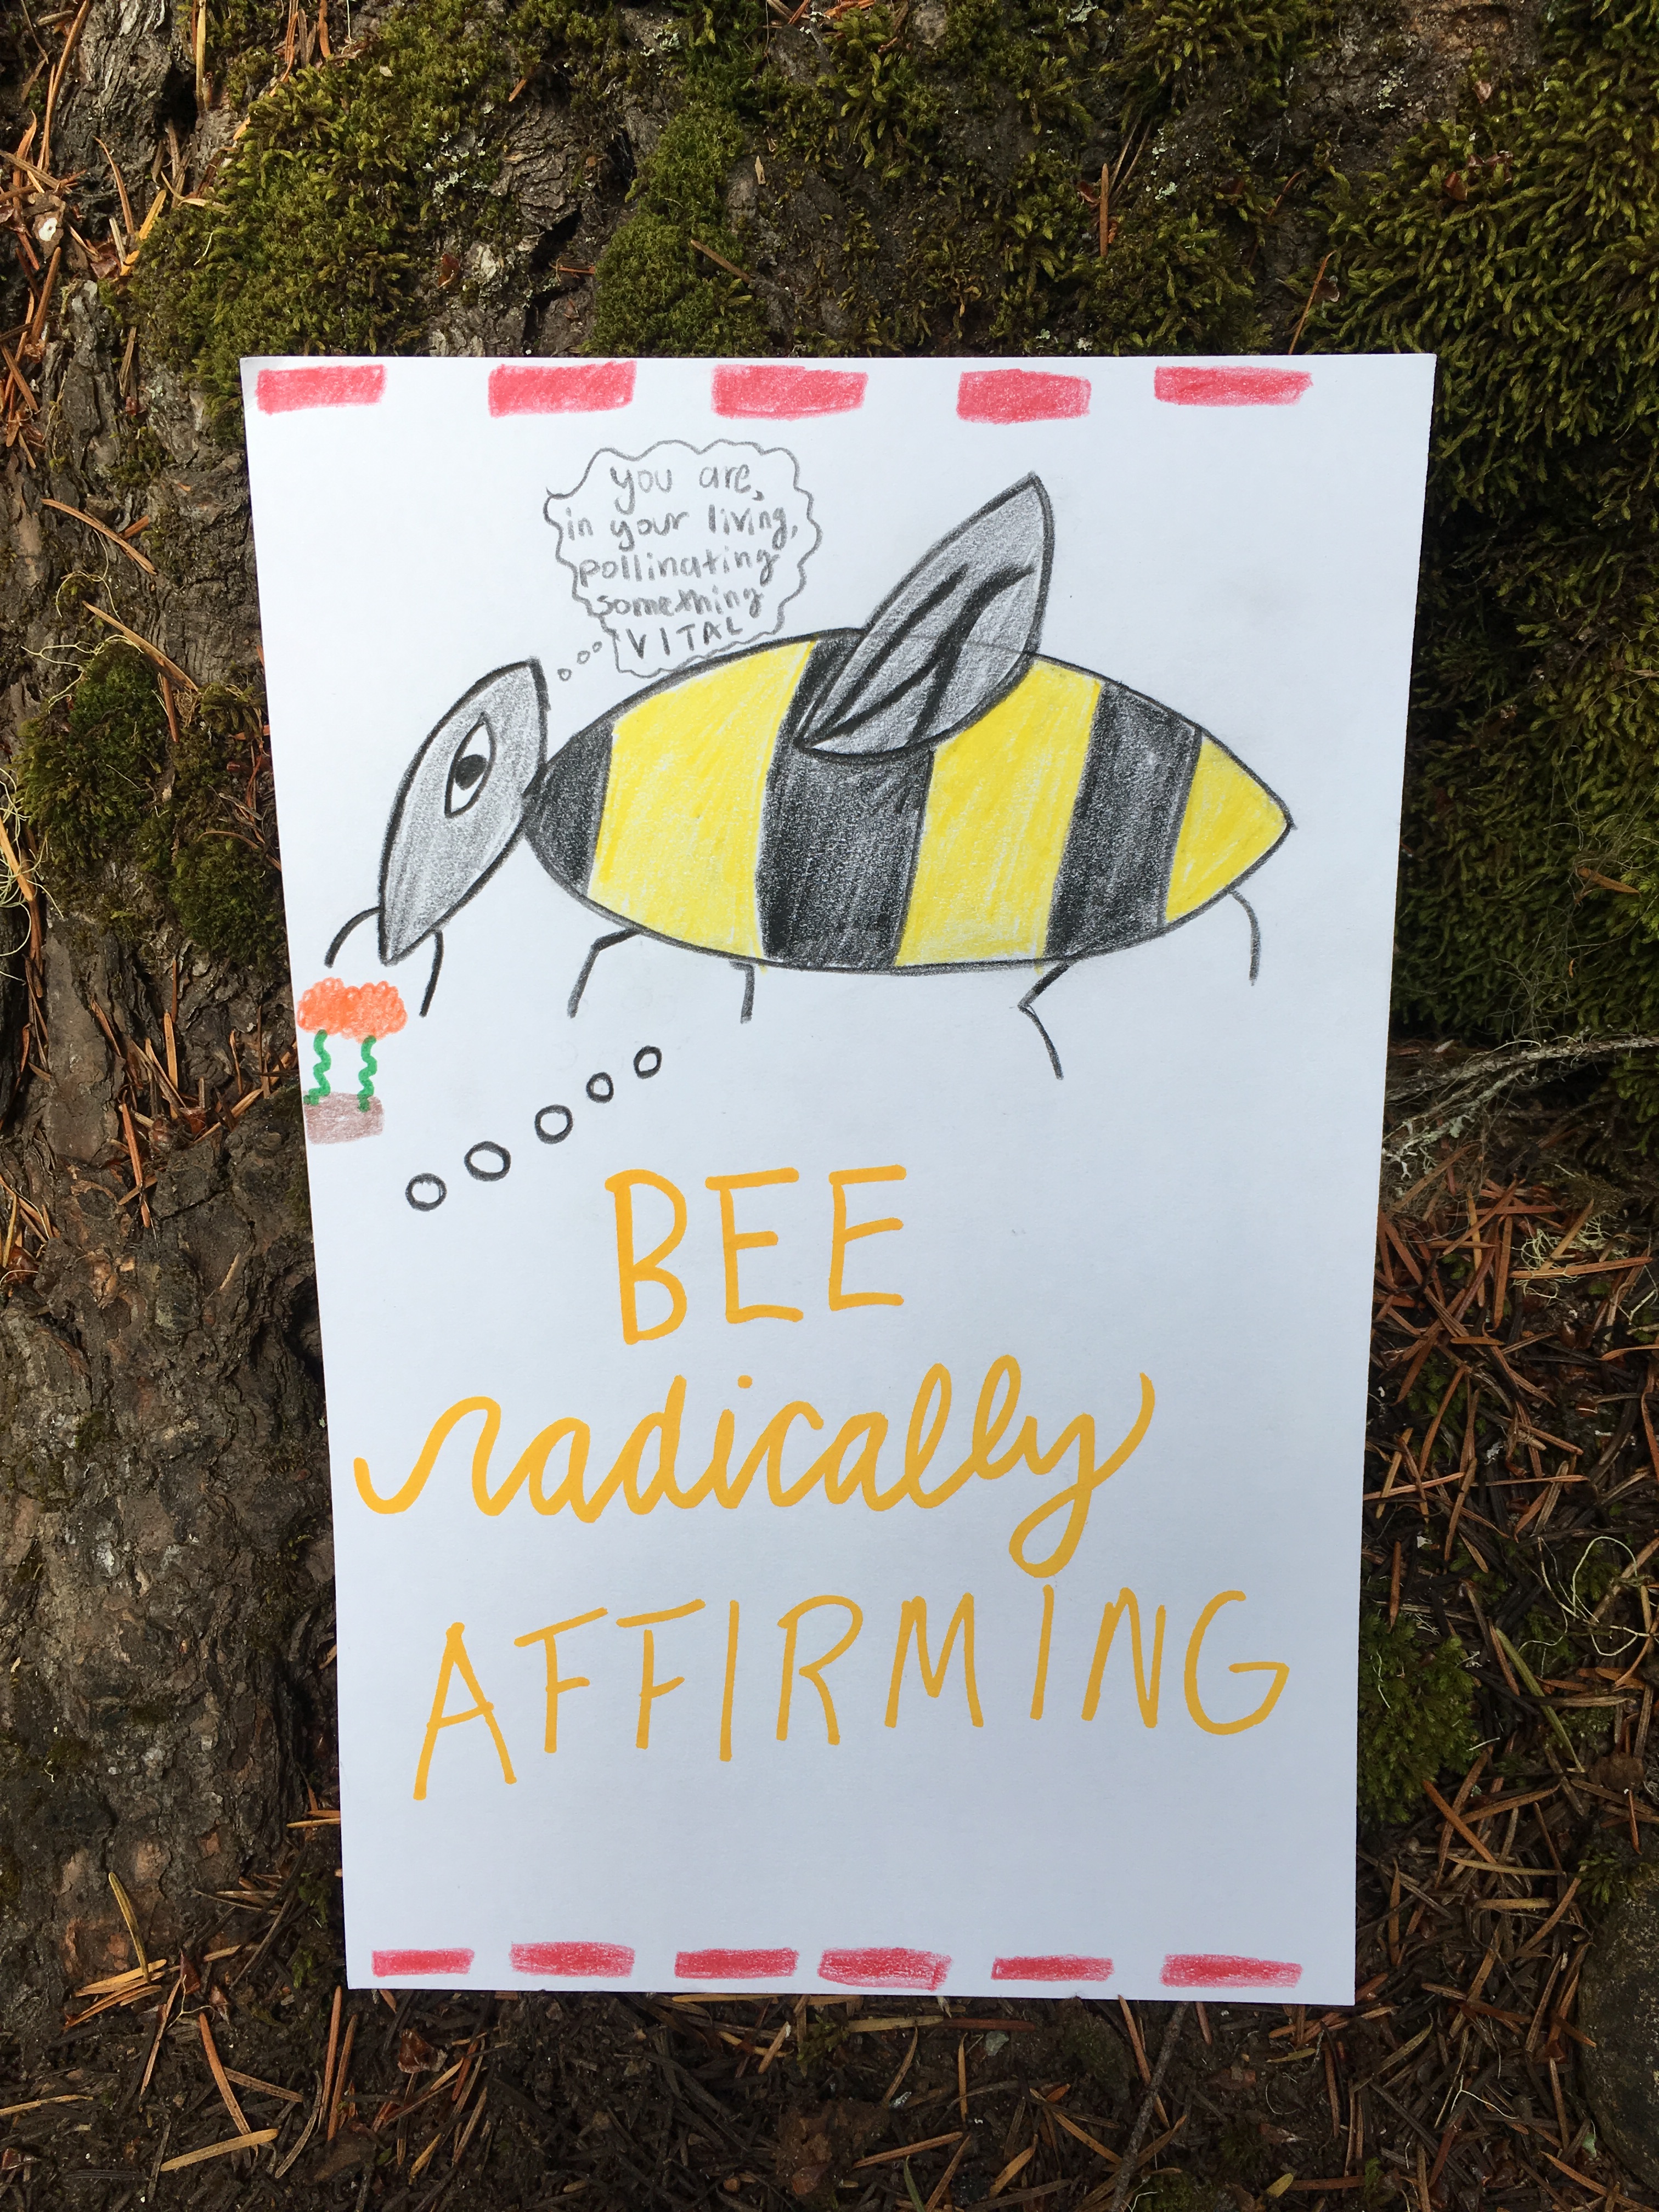 you are,
in your living,
pollinating
something
VITAL
BEE
radically
AFFIRMING